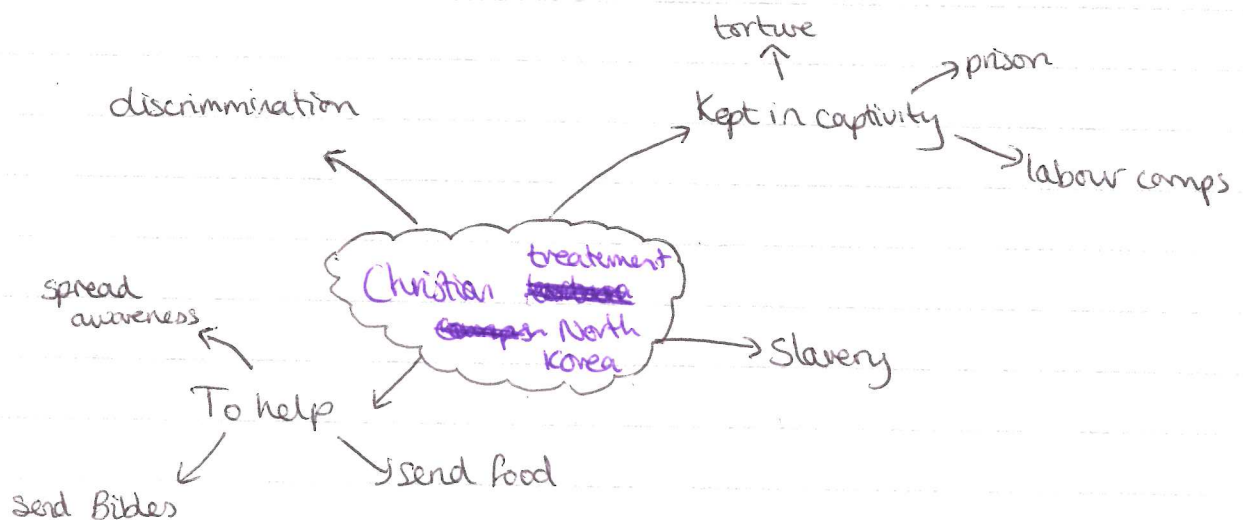 torture
prison
discrimmination
Kept in captivity
labour camps
treatement
Christian
North
Korea
spread
awareness
Slavery
To help
send food
send Bibles